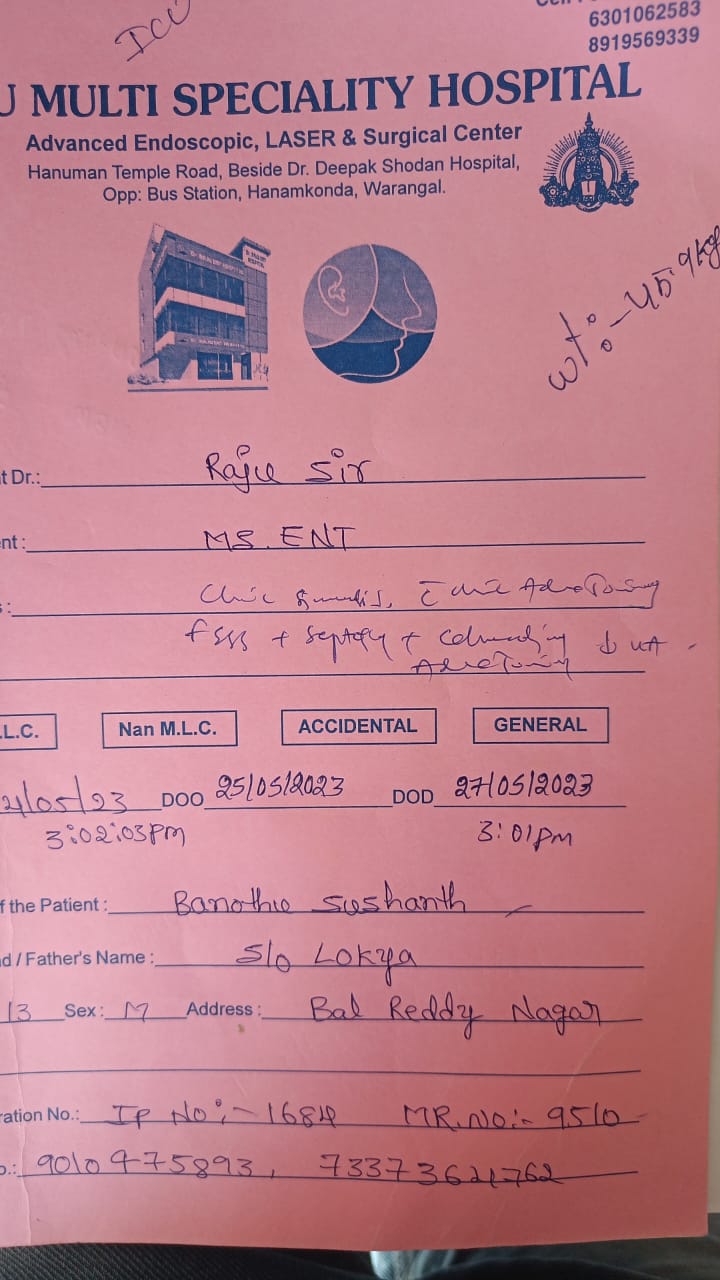 ICU
6301062583
8919569339
U MULTI SPECIALITY HOSPITAL
Advanced Endoscopic, LASER & Surgical Center
Hanuman Temple Road, Beside Dr. Deepak Shodan Hospital,
Opp: Bus Station, Hanamkonda, Warangal.
wt:- 45.9kg
t Dr.: Raju Sir
nt: MS. ENT
s:
FESS + +
L.C. Nan M.L.C. ACCIDENTAL GENERAL
/05/23 DOO 25/05/2023 DOD 27/05/2023
3:02:03pm 3:01pm
f the Patient: Banothu Sushanth
nd / Father's Name: S/o Lokya
13 Sex: M Address: Bal Reddy Nagar
ration No.: IP No:- 1684 MR.NO:- 9510
o.: 9010475893,